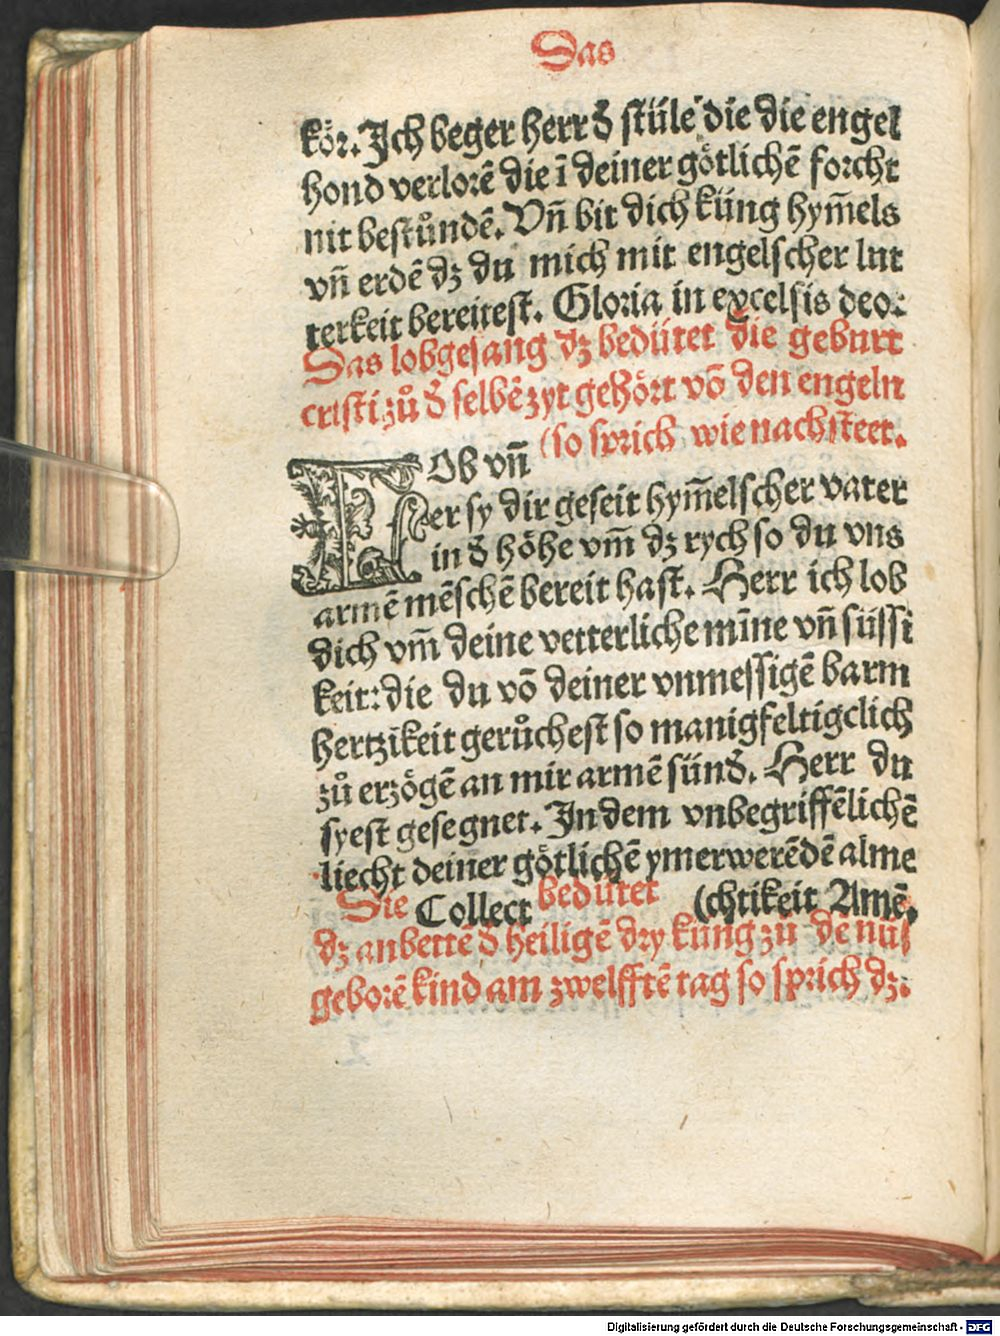 Das
kör. Ich beger herr đ stüle die die engel
hond verlorē die ī deiner götlichē forcht
nit bestůndē. Vn̄ bit dich küng hym̄els
vn̄ erdē dz du mich mit engelscher lut
terkeit bereitest. Gloria in excelsis deo.
Das lobgesang dz bedütet die geburt
cristi zů đ selbē zyt gehört vō den engeln
(so sprich wie nachsteet.
LOb vn̄
er sy dir geseit hym̄elscher vater
in đ höhe vm̄ dz rych so du vns
armē mēschē bereit hast. Herr ich lob
dich vm̄ deine vetterliche mīne vn̄ süssi
keit: die du vō deiner vnmessigē barm
hertzikeit gerůchest so manigfeltigclich
zů erzögē an mir armē sünđ. Herr du
syest gesegnet. In dem vnbegriffēlichē
liecht deiner götlichē ymerwerēdē alme
Die Collect bedütet (chtikeit Amē.
dz anbettē đ heiligē dry küng zů dē nüs
geborē kind am zwelfftē tag so sprich dz.
Digitalisierung gefördert durch die Deutsche Forschungsgemeinschaft - DFG